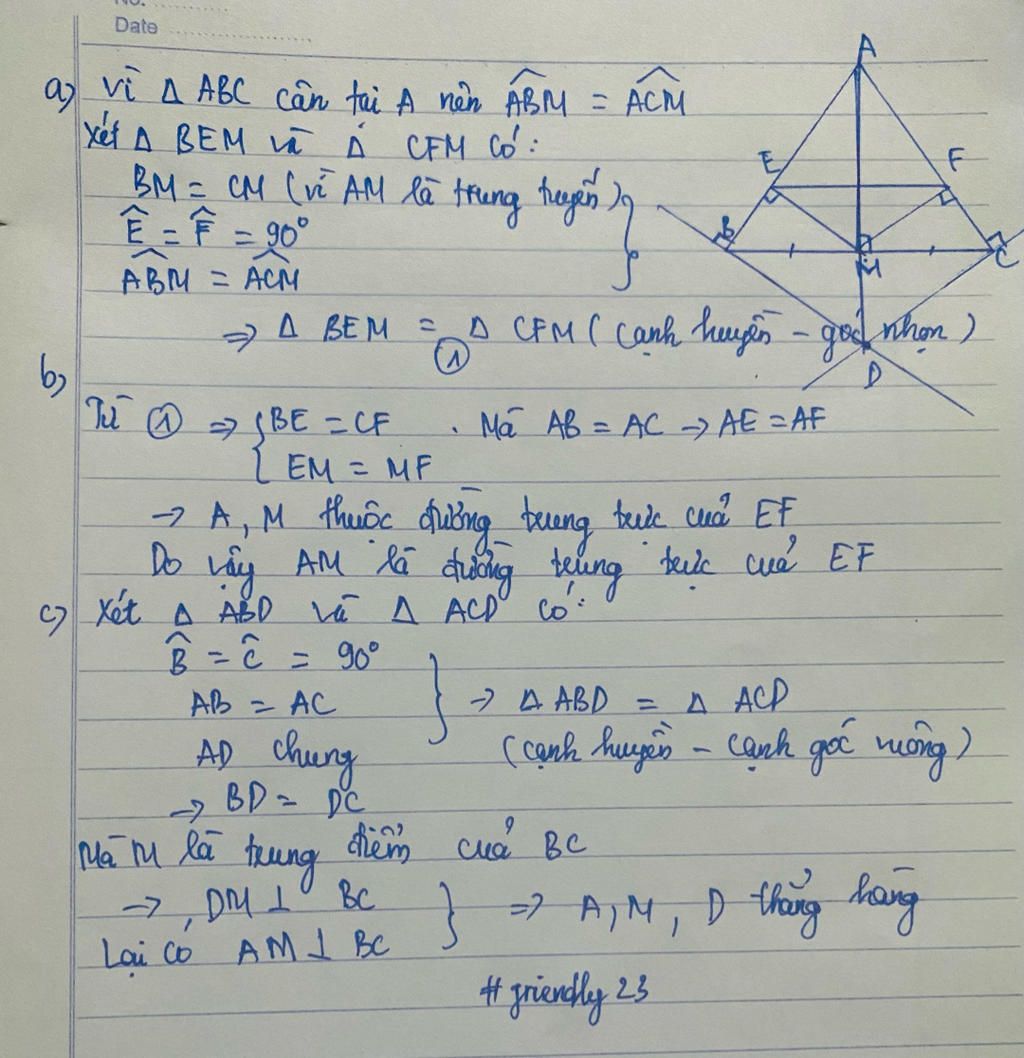 No.
Date
a) Vì Δ ABC cân tại A nên \widehat{ABM} = \widehat{ACM}
Xét Δ BEM và Δ CFM có:
BM = CM (vì AM là trung tuyến)
\widehat{E} = \widehat{F} = 90°
\widehat{ABM} = \widehat{ACM}
⇒ Δ BEM = Δ CFM (cạnh huyền - góc nhọn)
①
b)
Từ ① ⇒ { BE = CF . Mà AB = AC → AE = AF
EM = MF
→ A, M thuộc đường trung trực của EF
Do vậy AM là đường trung trực của EF
c) Xét Δ ABD và Δ ACD có:
\widehat{B} = \widehat{C} = 90°
AB = AC } → Δ ABD = Δ ACD
AD chung (cạnh huyền - cạnh góc vuông)
→ BD = DC
Mà M là trung điểm của BC
→ DM ⊥ BC } ⇒ A, M, D thẳng hàng
Lại có AM ⊥ BC
# griendly 23
A
E
F
B
M
C
D